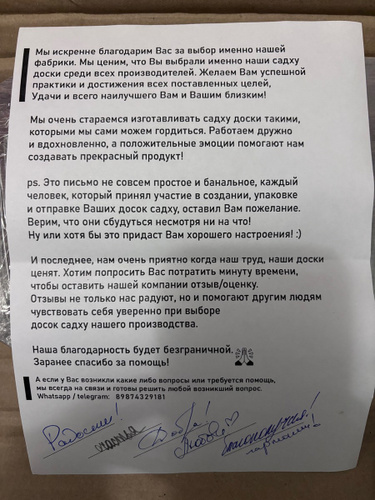 Мы искренне благодарим Вас за выбор именно нашей
фабрики. Мы ценим, что Вы выбрали именно наши садху
доски среди всех производителей. Желаем Вам успешной
практики и достижения всех поставленных целей,
Удачи и всего наилучшего Вам и Вашим близким!
Мы очень стараемся изготавливать садху доски такими,
которыми мы сами можем гордиться. Работаем дружно
и вдохновленно, а положительные эмоции помогают нам
создавать прекрасный продукт!
ps. Это письмо не совсем простое и банальное, каждый
человек, который принял участие в создании, упаковке
и отправке Ваших досок садху, оставил Вам пожелание.
Верим, что они сбудуться несмотря ни на что!
Ну или хотя бы это придаст Вам хорошего настроения! :)
И последнее, нам очень приятно когда наш труд, наши доски
ценят. Хотим попросить Вас потратить минуту времени,
чтобы оставить нашей компании отзыв/оценку.
Отзывы не только нас радуют, но и помогают другим людям
чувствовать себя уверенно при выборе
досок садху нашего производства.
Наша благодарность будет безграничной.
Заранее спасибо за помощь!
А если у Вас возникли какие либо вопросы или требуется помощь,
мы всегда на связи и готовы решить любой возникший вопрос.
Whatsapp / telegram: 89874329181
Радости! счастья Добра!
Любви
гармонии!